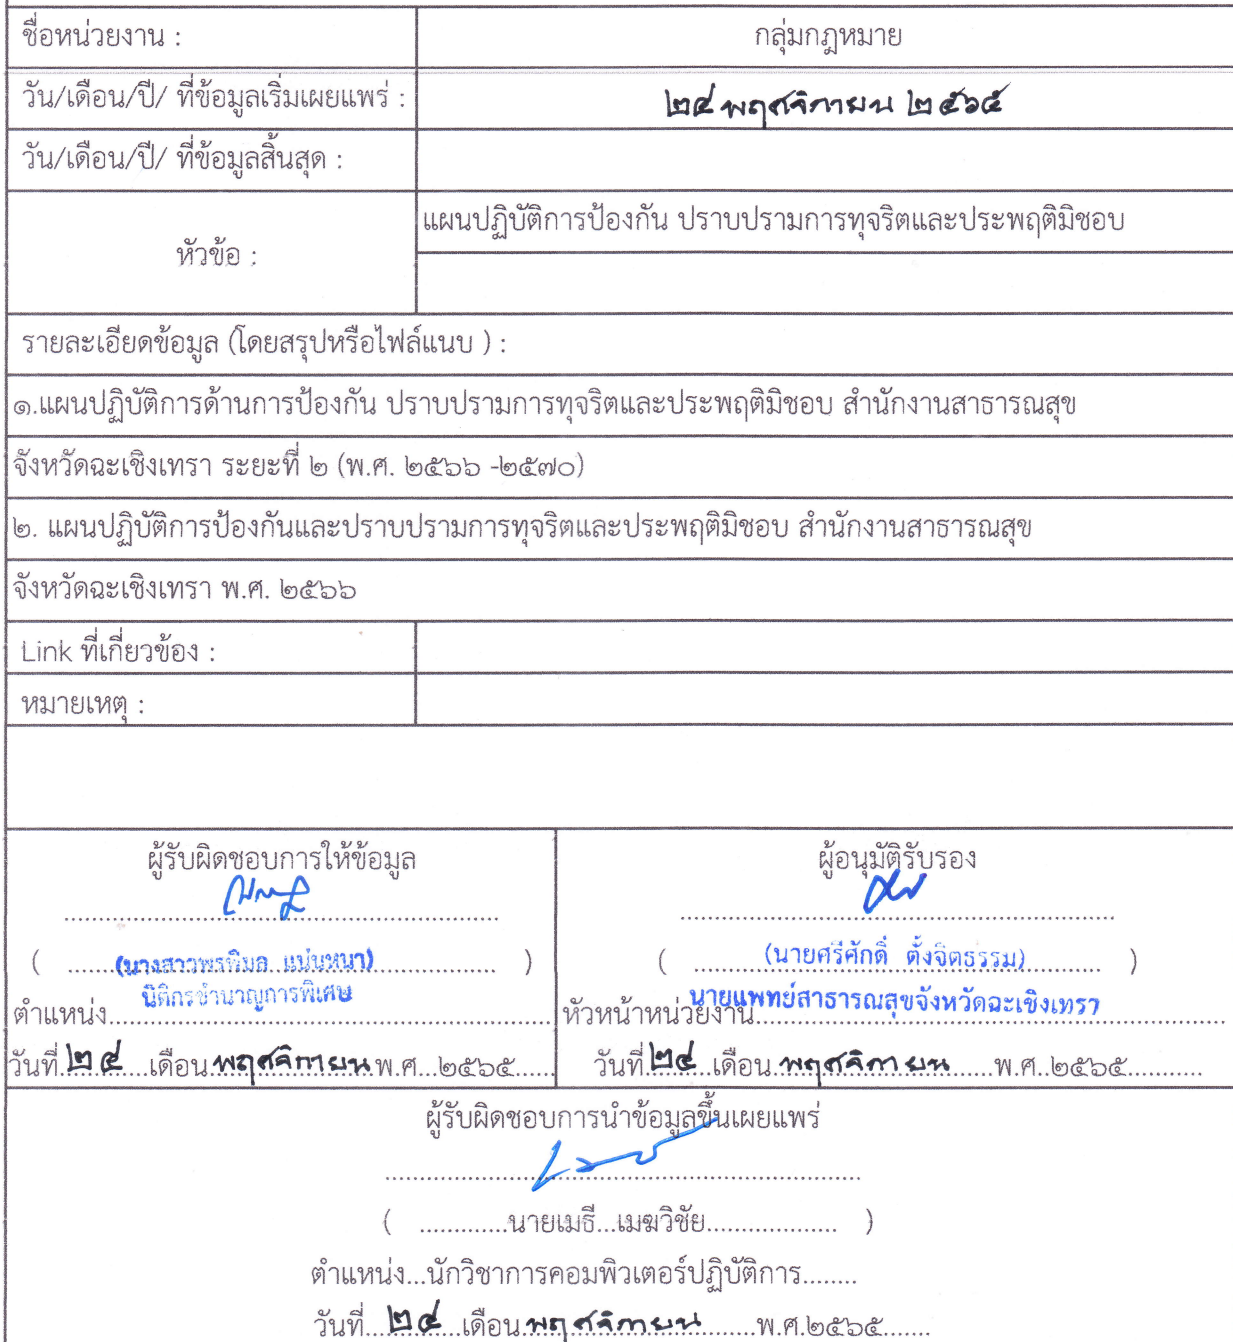 ชื่อหน่วยงาน : กลุ่มกฎหมาย
วัน/เดือน/ปี/ ที่ข้อมูลเริ่มเผยแพร่ : ๒๔ พฤศจิกายน ๒๕๖๕
วัน/เดือน/ปี/ ที่ข้อมูลสิ้นสุด :
หัวข้อ : แผนปฏิบัติการป้องกัน ปราบปรามการทุจริตและประพฤติมิชอบ
รายละเอียดข้อมูล (โดยสรุปหรือไฟล์แนบ ) :
๑.แผนปฏิบัติการด้านการป้องกัน ปราบปรามการทุจริตและประพฤติมิชอบ สำนักงานสาธารณสุข
จังหวัดฉะเชิงเทรา ระยะที่ ๒ (พ.ศ. ๒๕๖๖ -๒๕๗๐)
๒. แผนปฏิบัติการป้องกันและปราบปรามการทุจริตและประพฤติมิชอบ สำนักงานสาธารณสุข
จังหวัดฉะเชิงเทรา พ.ศ. ๒๕๖๖
Link ที่เกี่ยวข้อง :
หมายเหตุ :
ผู้รับผิดชอบการให้ข้อมูล
(นางสาวพรพิมล แน่นหนา)
นิติกรชำนาญการพิเศษ
ตำแหน่ง
วันที่ ๒๔ เดือน พฤศจิกายน พ.ศ...๒๕๖๕
ผู้อนุมัติรับรอง
(นายศรีศักดิ์ ตั้งจิตธรรม)
นายแพทย์สาธารณสุขจังหวัดฉะเชิงเทรา
หัวหน้าหน่วยงาน
วันที่ ๒๔ เดือน พฤศจิกายน พ.ศ..๒๕๖๕
ผู้รับผิดชอบการนำข้อมูลขึ้นเผยแพร่
( .............นายเมธี...เมฆวิชัย................... )
ตำแหน่ง...นักวิชาการคอมพิวเตอร์ปฏิบัติการ........
วันที่ ๒๔ เดือน พฤศจิกายน พ.ศ.๒๕๖๕.......